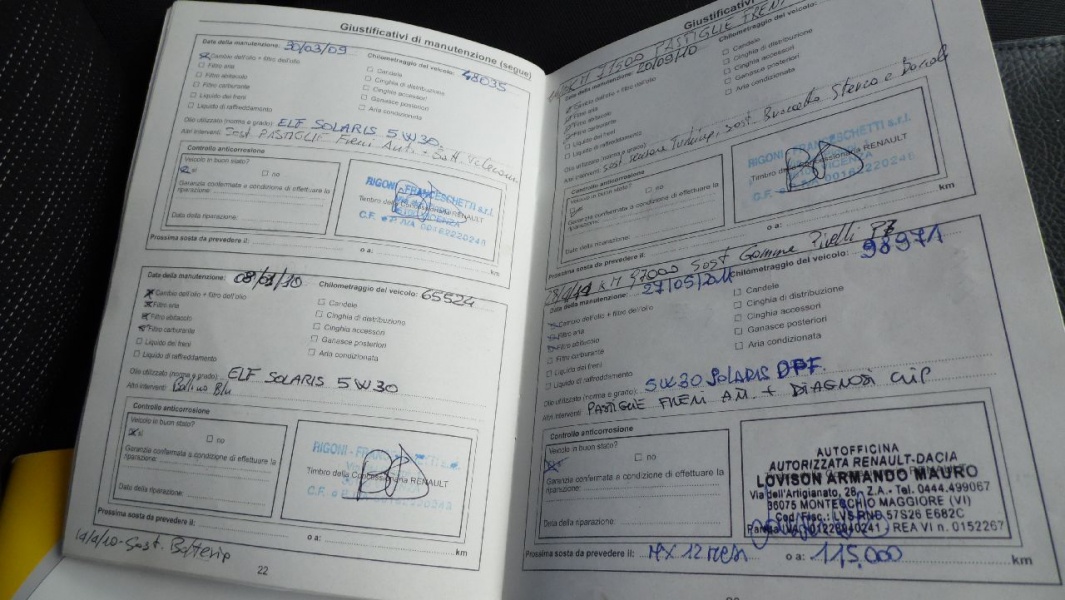 Giustificativi di manutenzione (segue)
Data della manutenzione: 30/03/09 Chilometraggio del veicolo: 48035
Cambio dell'olio + filtro dell'olio
Filtro aria
Filtro abitacolo
Filtro carburante
Liquido dei freni
Liquido di raffreddamento
Candele
Cinghia di distribuzione
Cinghia accessori
Ganasce posteriori
Aria condizionata
Olio utilizzato (norma e grado): ELF SOLARIS 5W30
Altri interventi: Sost PASTIGLIE Freni Ant.
Controllo anticorrosione
Veicolo in buon stato?
sì no
Garanzia confermata a condizione di effettuare la
riparazione:
Data della riparazione:
RIGONI - FRANCESCHETTI s.r.l.
Timbro della Concessionaria RENAULT
VICENZA
C.F. e P. IVA
Prossima sosta da prevedere il: o a: km
Data della manutenzione: Chilometraggio del veicolo: 65524
Cambio dell'olio + filtro dell'olio
Filtro aria
Filtro abitacolo
Filtro carburante
Liquido dei freni
Liquido di raffreddamento
Candele
Cinghia di distribuzione
Cinghia accessori
Ganasce posteriori
Aria condizionata
Olio utilizzato (norma e grado): ELF SOLARIS 5W30
Altri interventi: Bollino Blu
Controllo anticorrosione
Veicolo in buon stato?
sì no
Garanzia confermata a condizione di effettuare la
riparazione:
Data della riparazione:
RIGONI - FRAN
Timbro della Concessionaria RENAULT
C.F. e
Prossima sosta da prevedere il: o a: km
Sost. Batteria
22
Giustificativi
PASTIGLIE FRENI
Data della manutenzione: 20/09/10 Chilometraggio del veicolo:
Cambio dell'olio + filtro dell'olio
Filtro aria
Filtro abitacolo
Filtro carburante
Liquido dei freni
Liquido di raffreddamento
Candele
Cinghia di distribuzione
Cinghia accessori
Ganasce posteriori
Aria condizionata
Olio utilizzato (norma e grado):
Altri interventi: sost
Controllo anticorrosione
Veicolo in buon stato?
no
Garanzia confermata a condizione di effettuare la
riparazione:
Data della riparazione:
RIGONI FRANCESCHETTI s.r.l.
Timbro della Concessionaria RENAULT
VICENZA
C.F. e P. IVA
Prossima sosta da prevedere il: o a: km
KM 97000 Sost Gomme Pirelli P7
Data della manutenzione: 27/05/2011 Chilometraggio del veicolo: 98971
Cambio dell'olio + filtro dell'olio
Filtro aria
Filtro abitacolo
Filtro carburante
Liquido dei freni
Liquido di raffreddamento
Candele
Cinghia di distribuzione
Cinghia accessori
Ganasce posteriori
Aria condizionata
Olio utilizzato (norma e grado): 5W30 SOLARIS DPF.
Altri interventi: PASTIGLIE FRENI AN. + DIAGNOSI CLIP
Controllo anticorrosione
Veicolo in buon stato?
no
Garanzia confermata a condizione di effettuare la
riparazione:
Data della riparazione:
AUTOFFICINA
AUTORIZZATA RENAULT-DACIA
LOVISON ARMANDO MAURO
Via dell'Artigianato, 28 - Z.A. - Tel. 0444.499067
36075 MONTECCHIO MAGGIORE (VI)
Cod. Fisc.: LVS RND 57S26 E682C
Partita IVA 01226940241 - REA VI n. 0152267
Prossima sosta da prevedere il: MX 12 MESI o a: 115.000 km